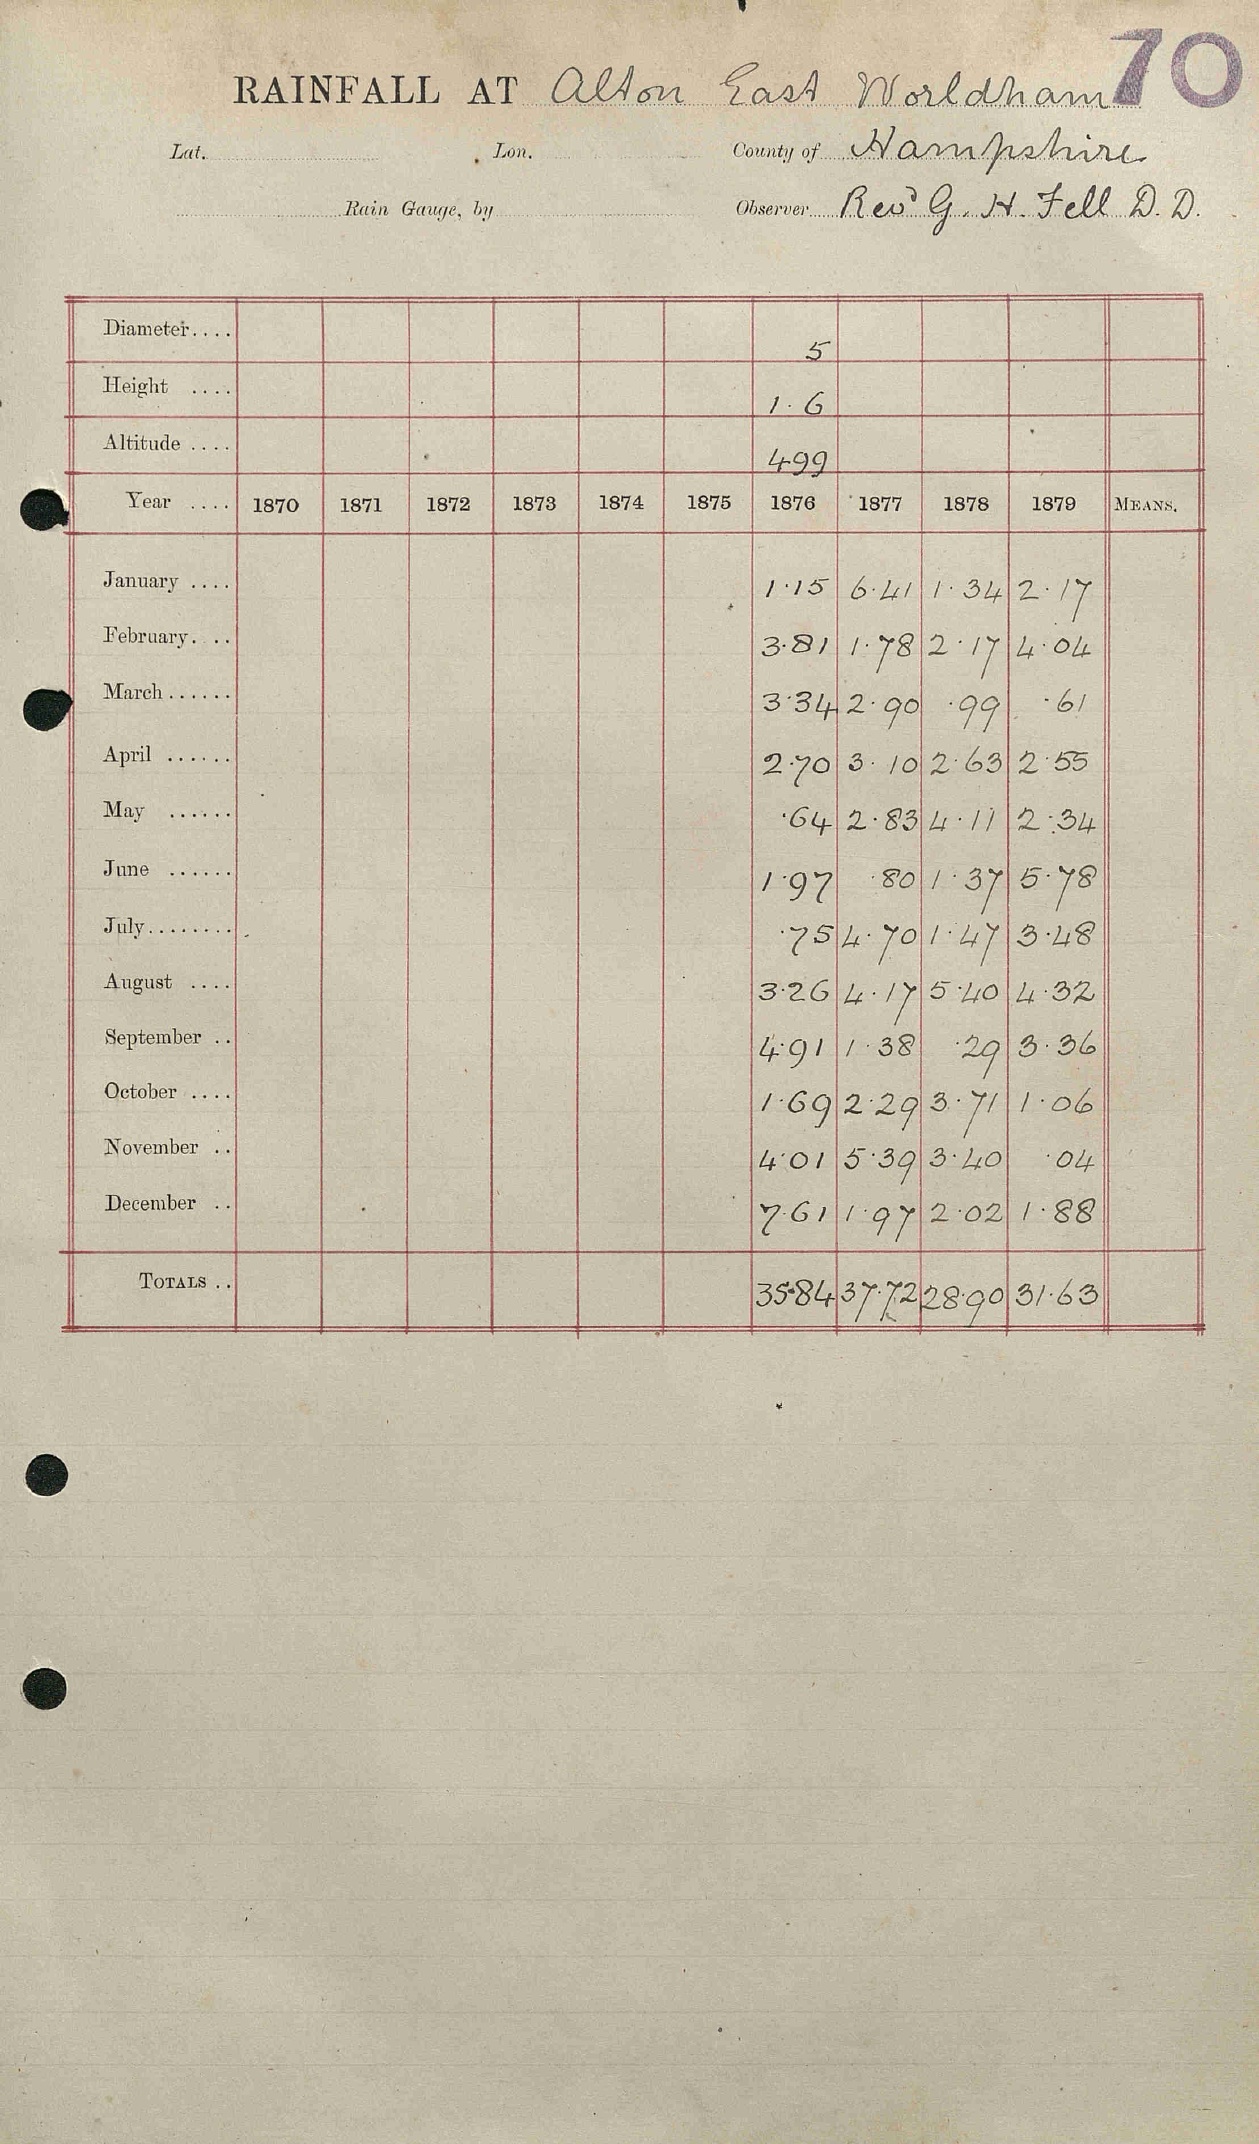 70
RAINFALL AT Alton East Worldham
Lat. Lon. County of Hampshire
Rain Gauge, by Observer Revd G. H. Fell D. D.
Diameter.... 5
Height .... 1.6
Altitude .... 499
Year .... 1870 1871 1872 1873 1874 1875 1876 1877 1878 1879 MEANS.
January .... 1.15 6.41 1.34 2.17
February. .. 3.81 1.78 2.17 4.04
March...... 3.34 2.90 .99 .61
April ...... 2.70 3.10 2.63 2.55
May ...... .64 2.83 4.11 2.34
June ...... 1.97 .80 1.37 5.78
July........ .75 4.70 1.47 3.48
August .... 3.26 4.17 5.40 4.32
September .. 4.91 1.38 .29 3.36
October .... 1.69 2.29 3.71 1.06
November .. 4.01 5.39 3.40 .04
December .. 7.61 1.97 2.02 1.88
TOTALS .. 35.84 37.72 28.90 31.63